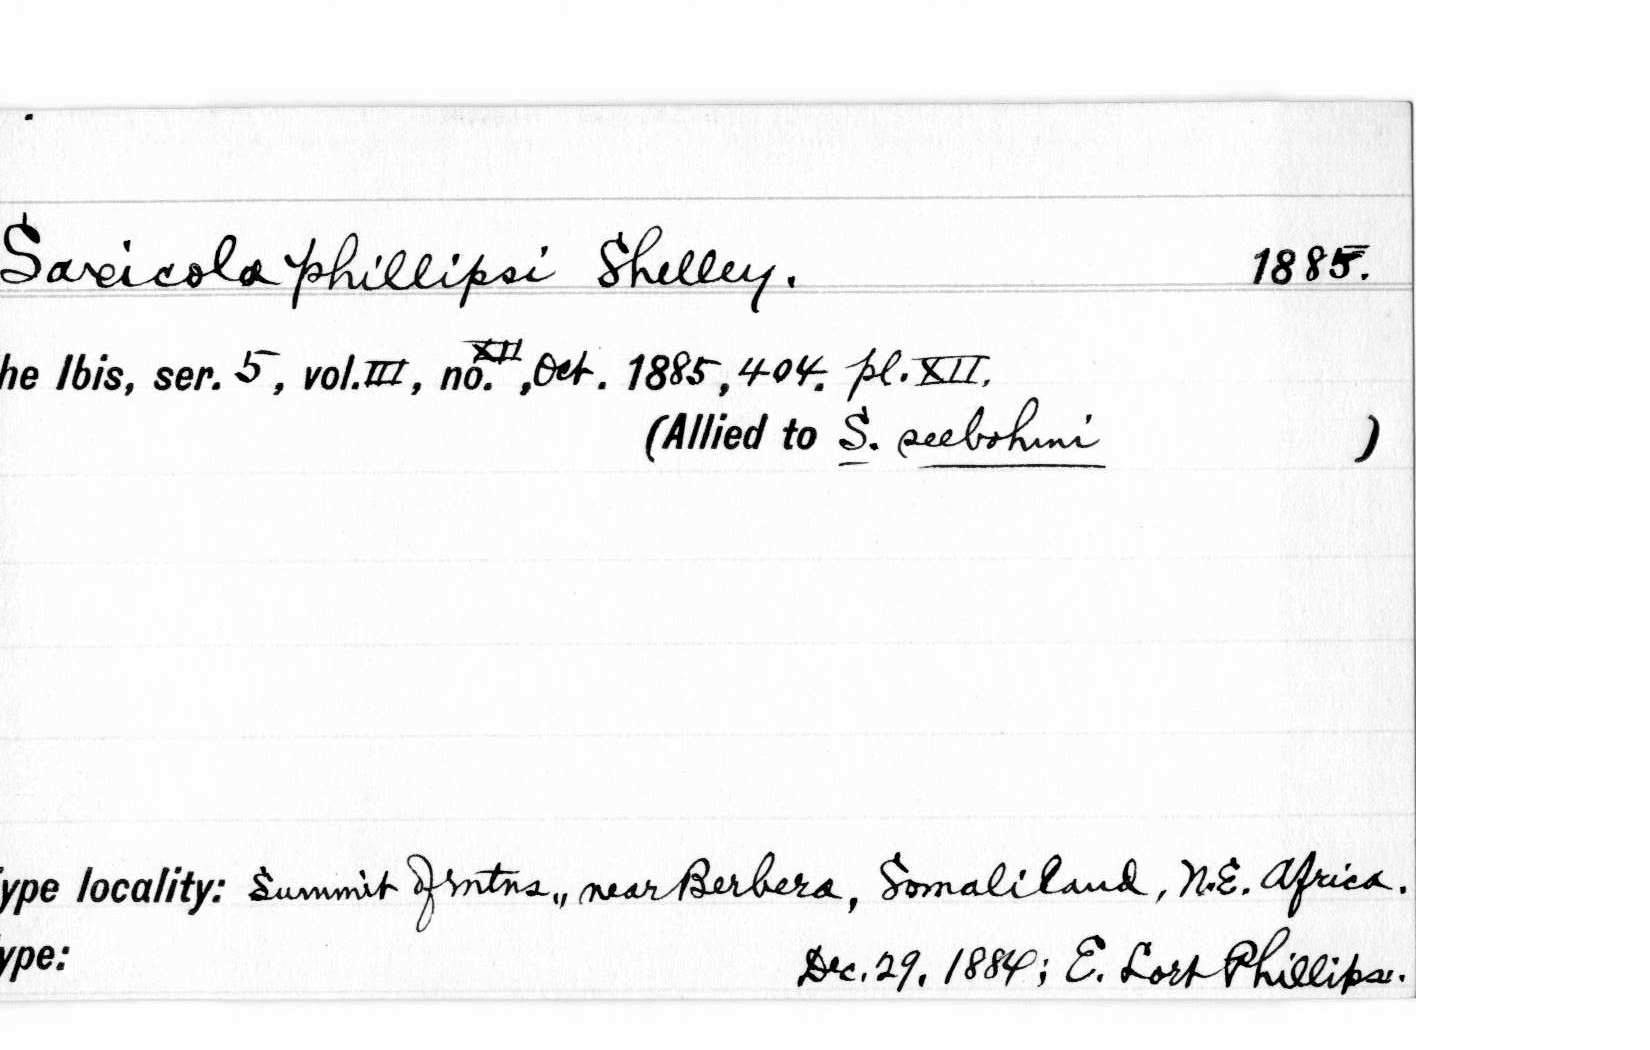 Saxicola phillipsi Shelley. 1885.
he Ibis, ser. 5, vol. III, no. XII, Oct. 1885, 404. pl. XII.
(Allied to S. seebohmi )
ype locality: Summit of mtns., near Berbera, Somaliland, N.E. Africa.
ype: Dec. 29, 1884; E. Lort Phillips.